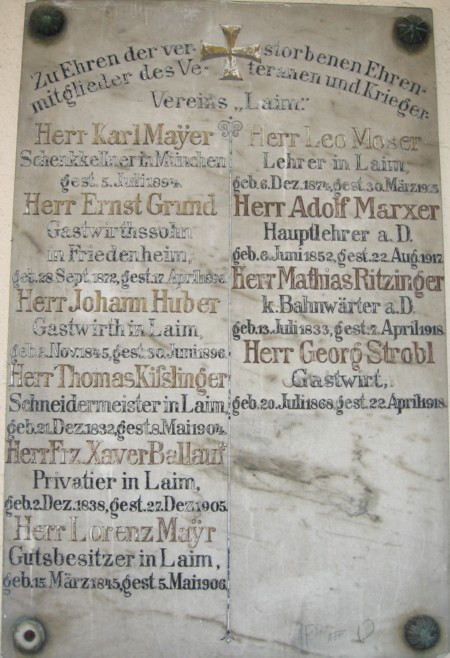 Zu Ehren der verstorbenen Ehren-
mitglieder des Veteranen und Krieger
Vereins „Laim."
Herr Karl Maÿer
Schenkkellner in München
gest. 5. Juli 1894.
Herr Ernst Grund
Gastwirthssohn
in Friedenheim,
geb. 28. Sept. 1872, gest. 17. April
Herr Johann Huber
Gastwirth in Laim,
geb. Nov. 1845, gest. 30. Juni 1896.
Herr Thomas Kißlinger
Schneidermeister in Laim,
geb. 21. Dez. 1832, gest. 8. Mai 1904.
Herr Frz. Xaver Ballauf
Privatier in Laim,
geb. 2. Dez. 1838, gest. 27. Dez. 1905.
Herr Lorenz Maÿr
Gutsbesitzer in Laim,
geb. 15. März 1845, gest. 5. Mai 1906.
Herr Leo Moser
Lehrer in Laim,
geb. 6. Dez. 1874, gest. 30. März
Herr Adolf Marxer
Hauptlehrer a. D.
geb. 6. Juni 1852, gest. 22. Aug. 1917.
Herr Mathias Ritzinger
k. Bahnwärter a. D.
geb. 13. Juli 1833, gest. 7. April 1918.
Herr Georg Strobl
Gastwirt,
geb. 20. Juli 1868, gest. 22. April 1918.